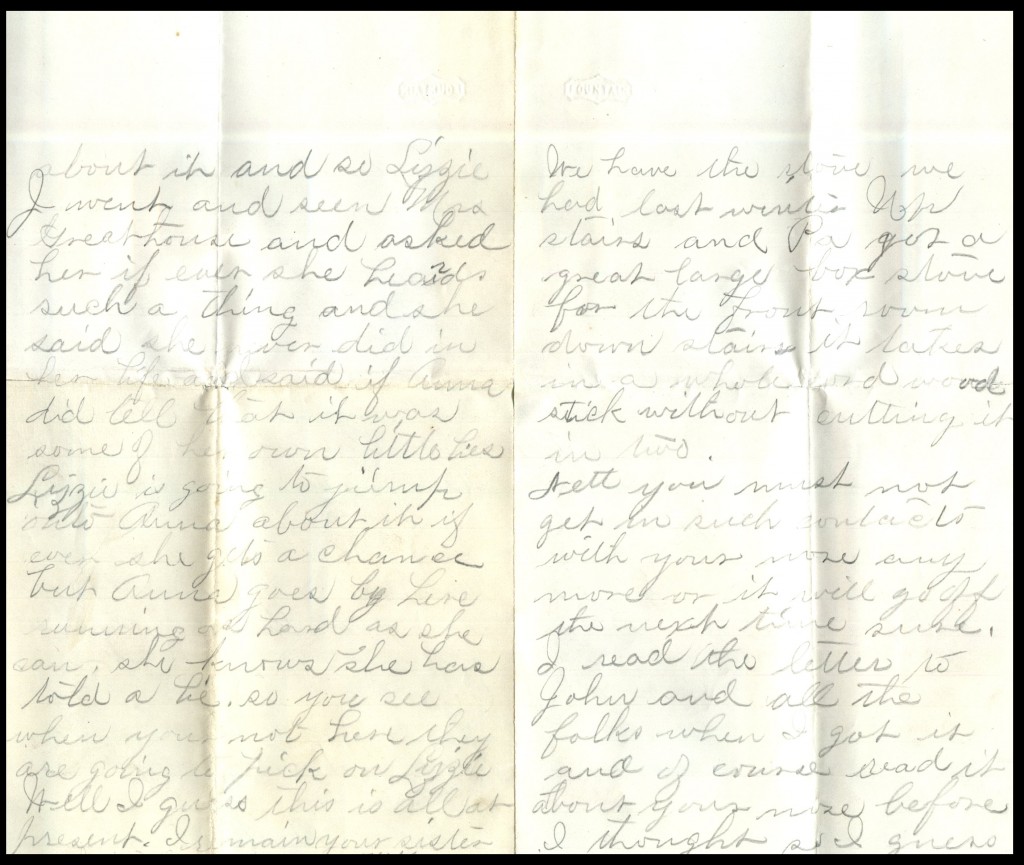 about it and so Lizzie
I went and seen Mrs
Greathouse and asked
her if ever she heards
such a thing and she
said she never did in
her life and said if Anna
did tell that it was
some of her own little lies
Lizzie is going to jump
onto Anna about it if
ever she gets a chance
but Anna goes by here
running as hard as she
can. she knows she has
told a lie. so you see
when your not here they
are going to pick on Lizzie
Well I guess this is all at
present. I remain your sister
FOUNTAIN
We have the stove we
had last winter Up
stairs and Pa got a
great large box stove
for the front room
down stairs it takes
in a whole cord wood
stick without cutting it
in two.
Well you must not
get in such contacts
with your nose any
more or it will go off
the next time sure.
I read the letter to
John and all the
folks when I got it
and of course read it
about your nose before
I thought so I guess